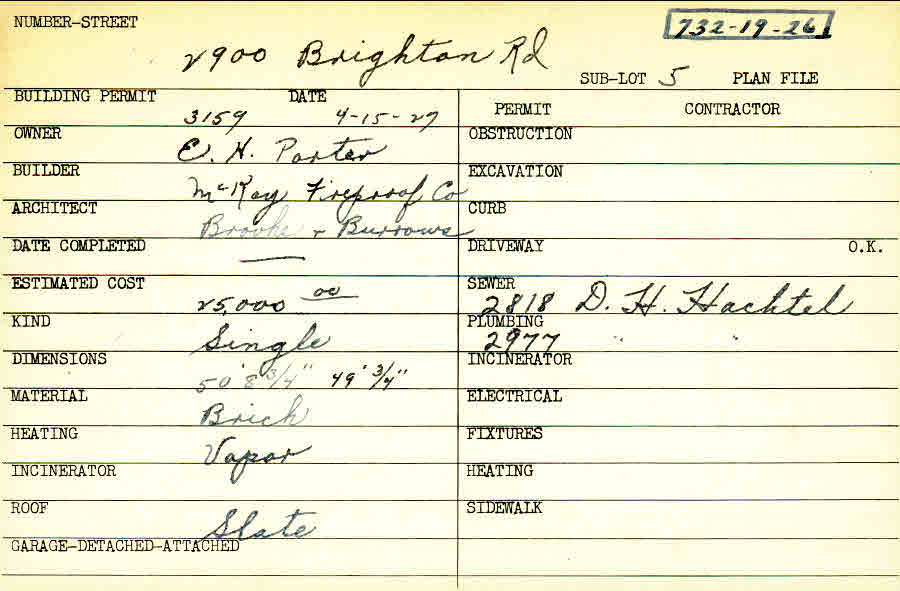 NUMBER-STREET
732-19-26
2900 Brighton Rd
SUB-LOT 5 PLAN FILE
BUILDING PERMIT DATE
3159 4-15-27
PERMIT CONTRACTOR
OWNER
E. H. Porter
OBSTRUCTION
BUILDER
McKay Fireproof Co
EXCAVATION
ARCHITECT
Brooke + Burrows
CURB
DATE COMPLETED
—
DRIVEWAY O.K.
ESTIMATED COST
25,000 00
SEWER
2818 D. H. Hachtel
KIND
Single
PLUMBING
2977 " "
DIMENSIONS
50' 8 3/4" 49' 3/4"
INCINERATOR
MATERIAL
Brick
ELECTRICAL
HEATING
Vapor
FIXTURES
INCINERATOR
HEATING
ROOF
Slate
SIDEWALK
GARAGE-DETACHED-ATTACHED